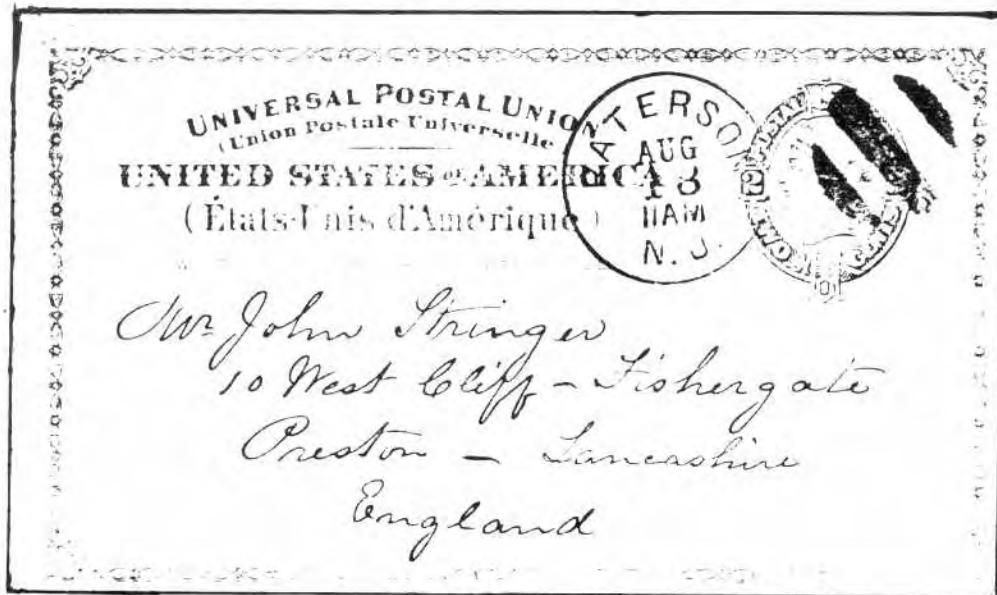 UNIVERSAL POSTAL UNION
(Union Postale Universelle
UNITED STATES OF AMERICA
(États-Unis d'Amérique)
PATERSON
AUG
13
11AM
N.J.
Mr John Stringer
10 West Cliff – Fishergate
Preston – Lancashire
England